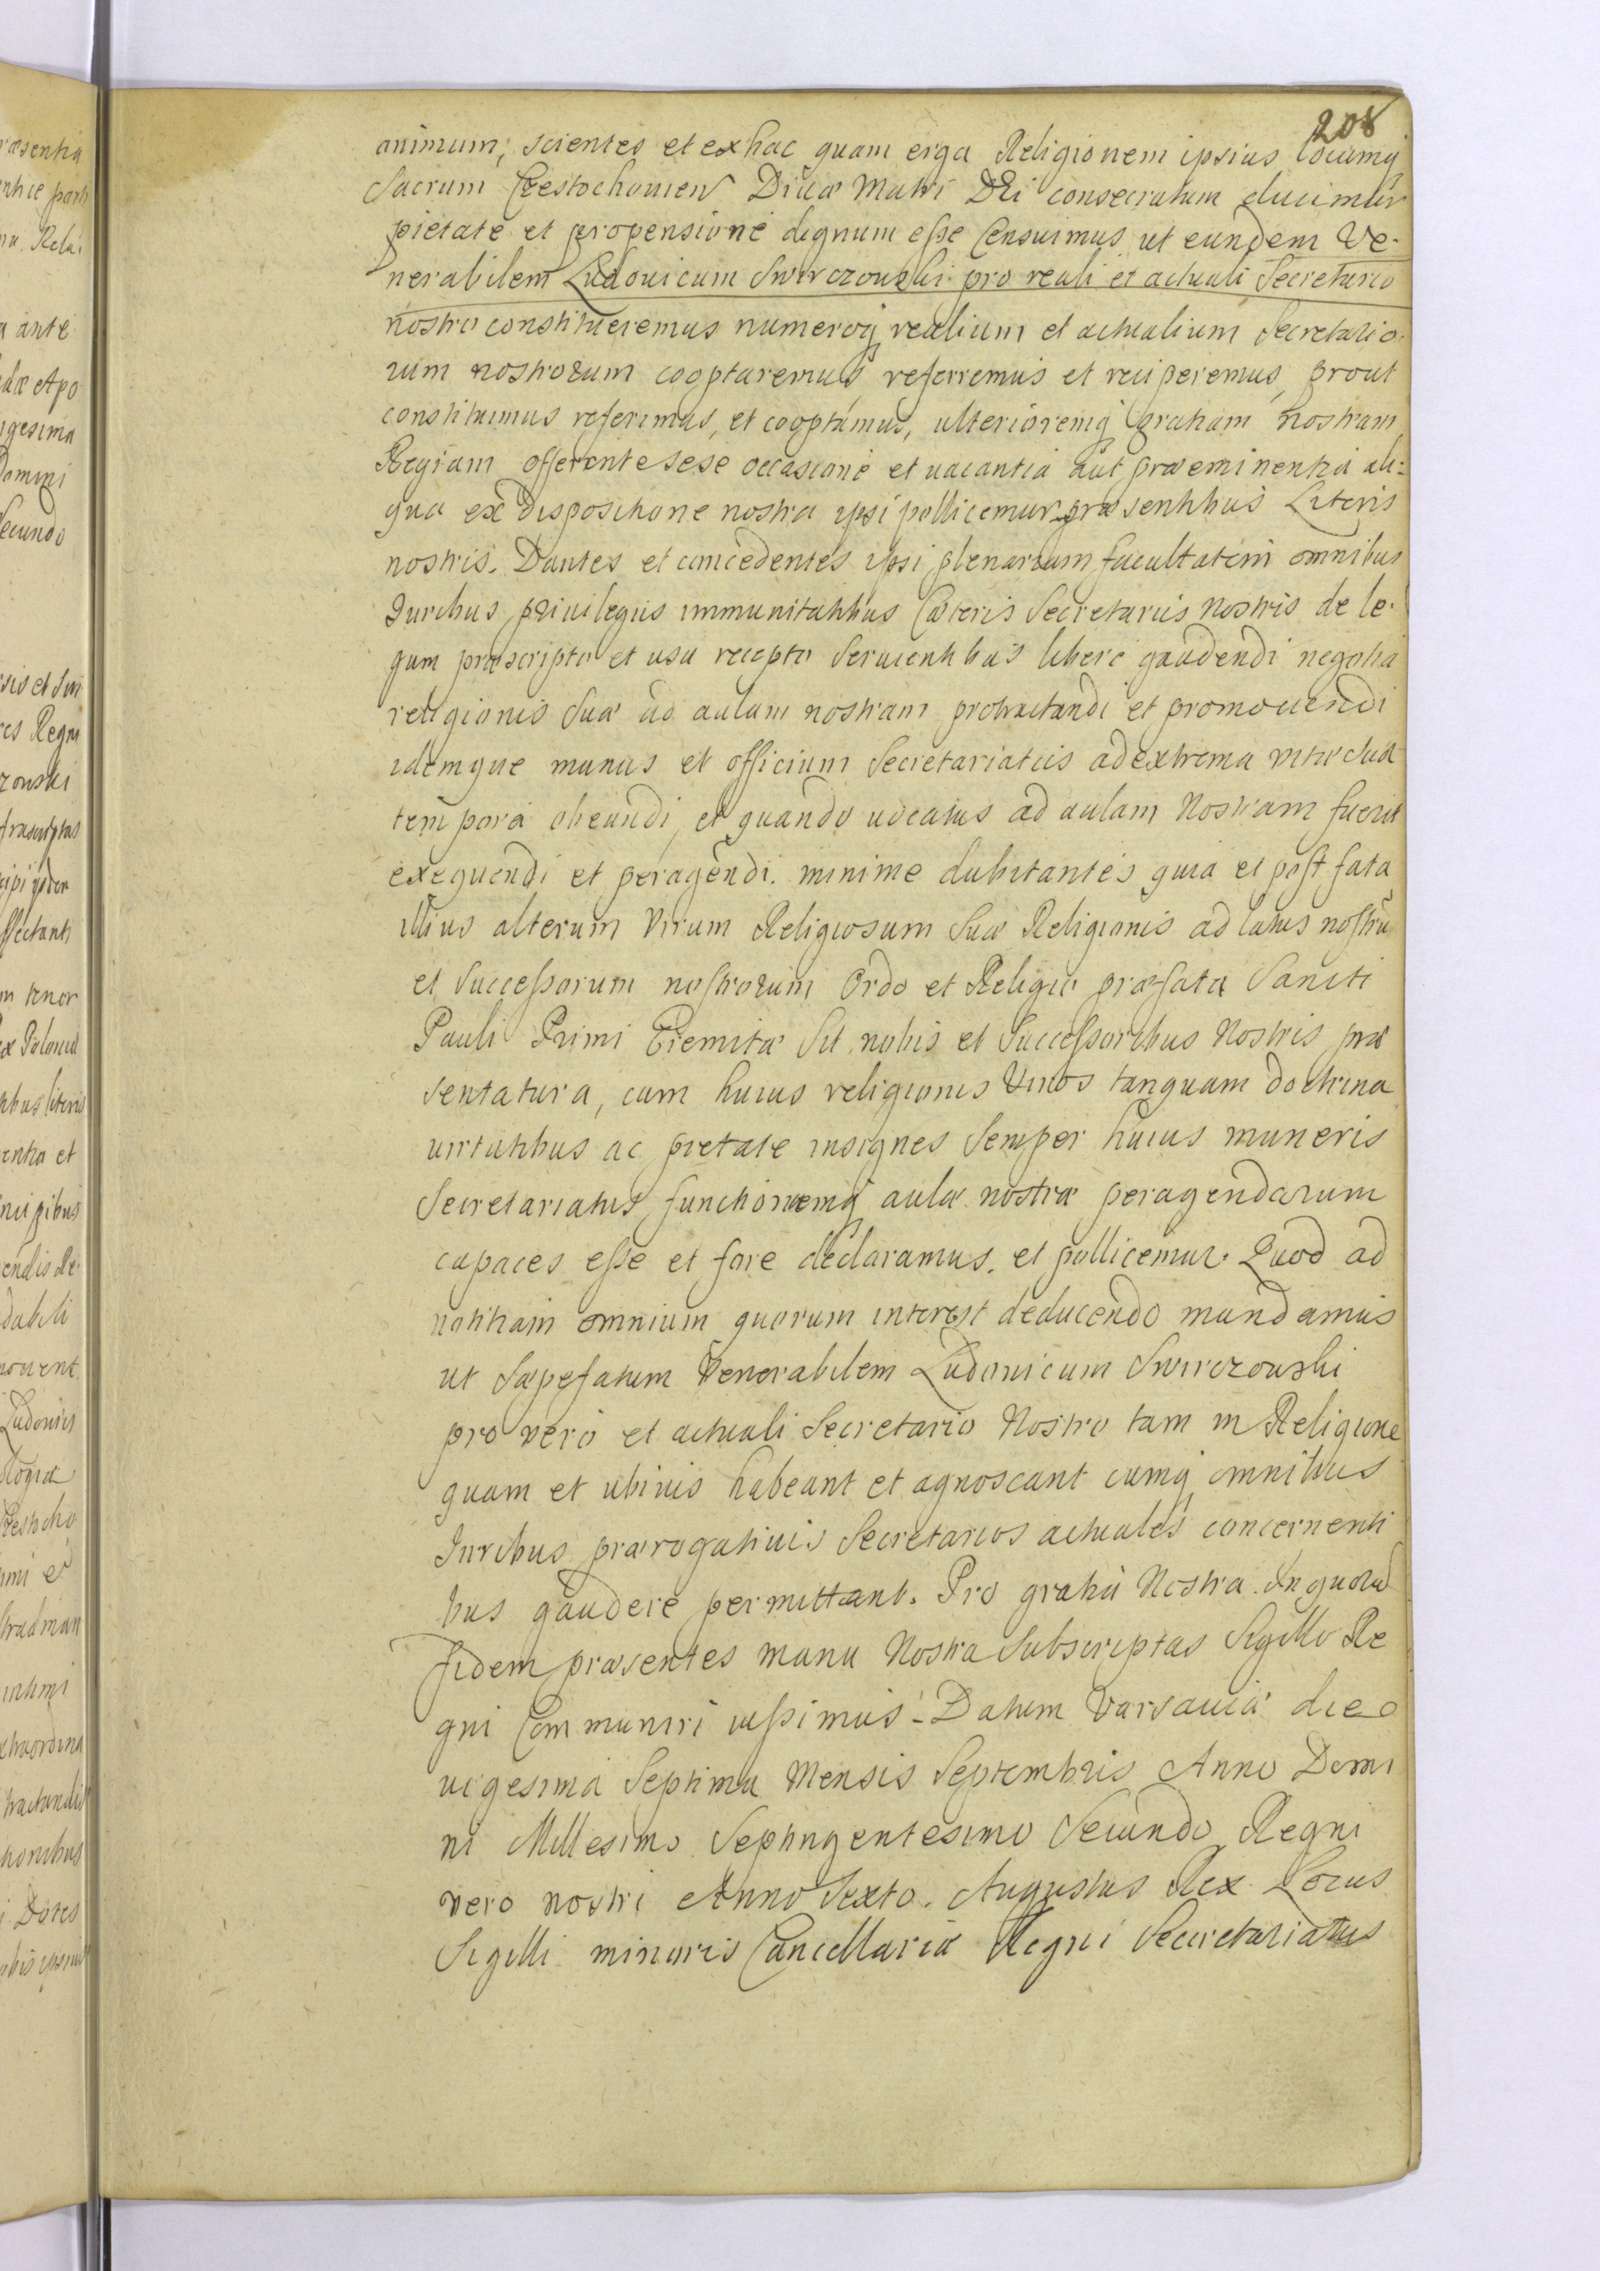 208
animum; scientes et ex hac quam erga Religionem ipsius locumq
Sacrum Czestochovien Divæ Matri DEi consecratum ducimur
pietate et propensione dignum esse Censuimus ut eundem Ve-
nerabilem Ludovicum Swirczouski pro reali et actuali Secretario
nostro constitueremus numeroq realium et actualium Secretario-
rum nostrorum cooptaremus referremus et reciperemus, prout
constituimus referimus, et cooptamus, ulterioremq gratiam Nostram
Regiam offerente sese occasione et vacantia aut præeminentia ali-
qua ex dispositione nostra ipsi pollicemur præsentibus Literis
nostris. Dantes et concedentes ipsi plenariam facultatem omnibus
Iuribus privilegiis immunitatibus Cæteris Secretariis Nostris de le-
gum præscripto et usu recepto servientibus libere gaudendi negotia
religionis Suæ ad aulam nostram protractandi et promovendi
idemque munus et officium Secretariatus ad extrema vitæ Suæ
tempora obeundi, et quando vocatus ad aulam Nostram fuerit
exequendi et peragendi. minime dubitantes quia et post fata
illius alterum Virum Religiosum Suæ Religionis ad latus nostrū
et Successorum nostrorum Ordo et Religio præfata Sancti
Pauli Primi Eremitæ Sit nobis et Successoribus Nostris præ
sentatura, cum huius religionis Viros tanquam doctrina
virtutibus ac pietate insignes Semper huius muneris
Secretariatus functionemq aulæ nostræ peragendarum
capaces esse et fore declaramus. et pollicemur. Quod ad
notitiam omnium quorum interest deducendo mandamus
ut Sæpefatum Venerabilem Ludovicum Swirczouski
pro vero et actuali Secretario Nostro tam in Religione
quam et ubivis habeant et agnoscant eumq omnibus
Iuribus prærogativis Secretarios actuales concernenti
bus gaudere permittant. Pro gratia Nostra. In quorū
fidem præsentes manu Nostra Subscriptas Sigillo Re
gni Communiri iussimus - Datum Varsaviæ die
vigesima Septima Mensis Septembris Anno Domi
ni Millesimo Septingentesimo Secundo Regni
vero nostri Anno Sexto. Augustus Rex. Locus
Sigilli minoris Cancellariæ Regni Secretariatus